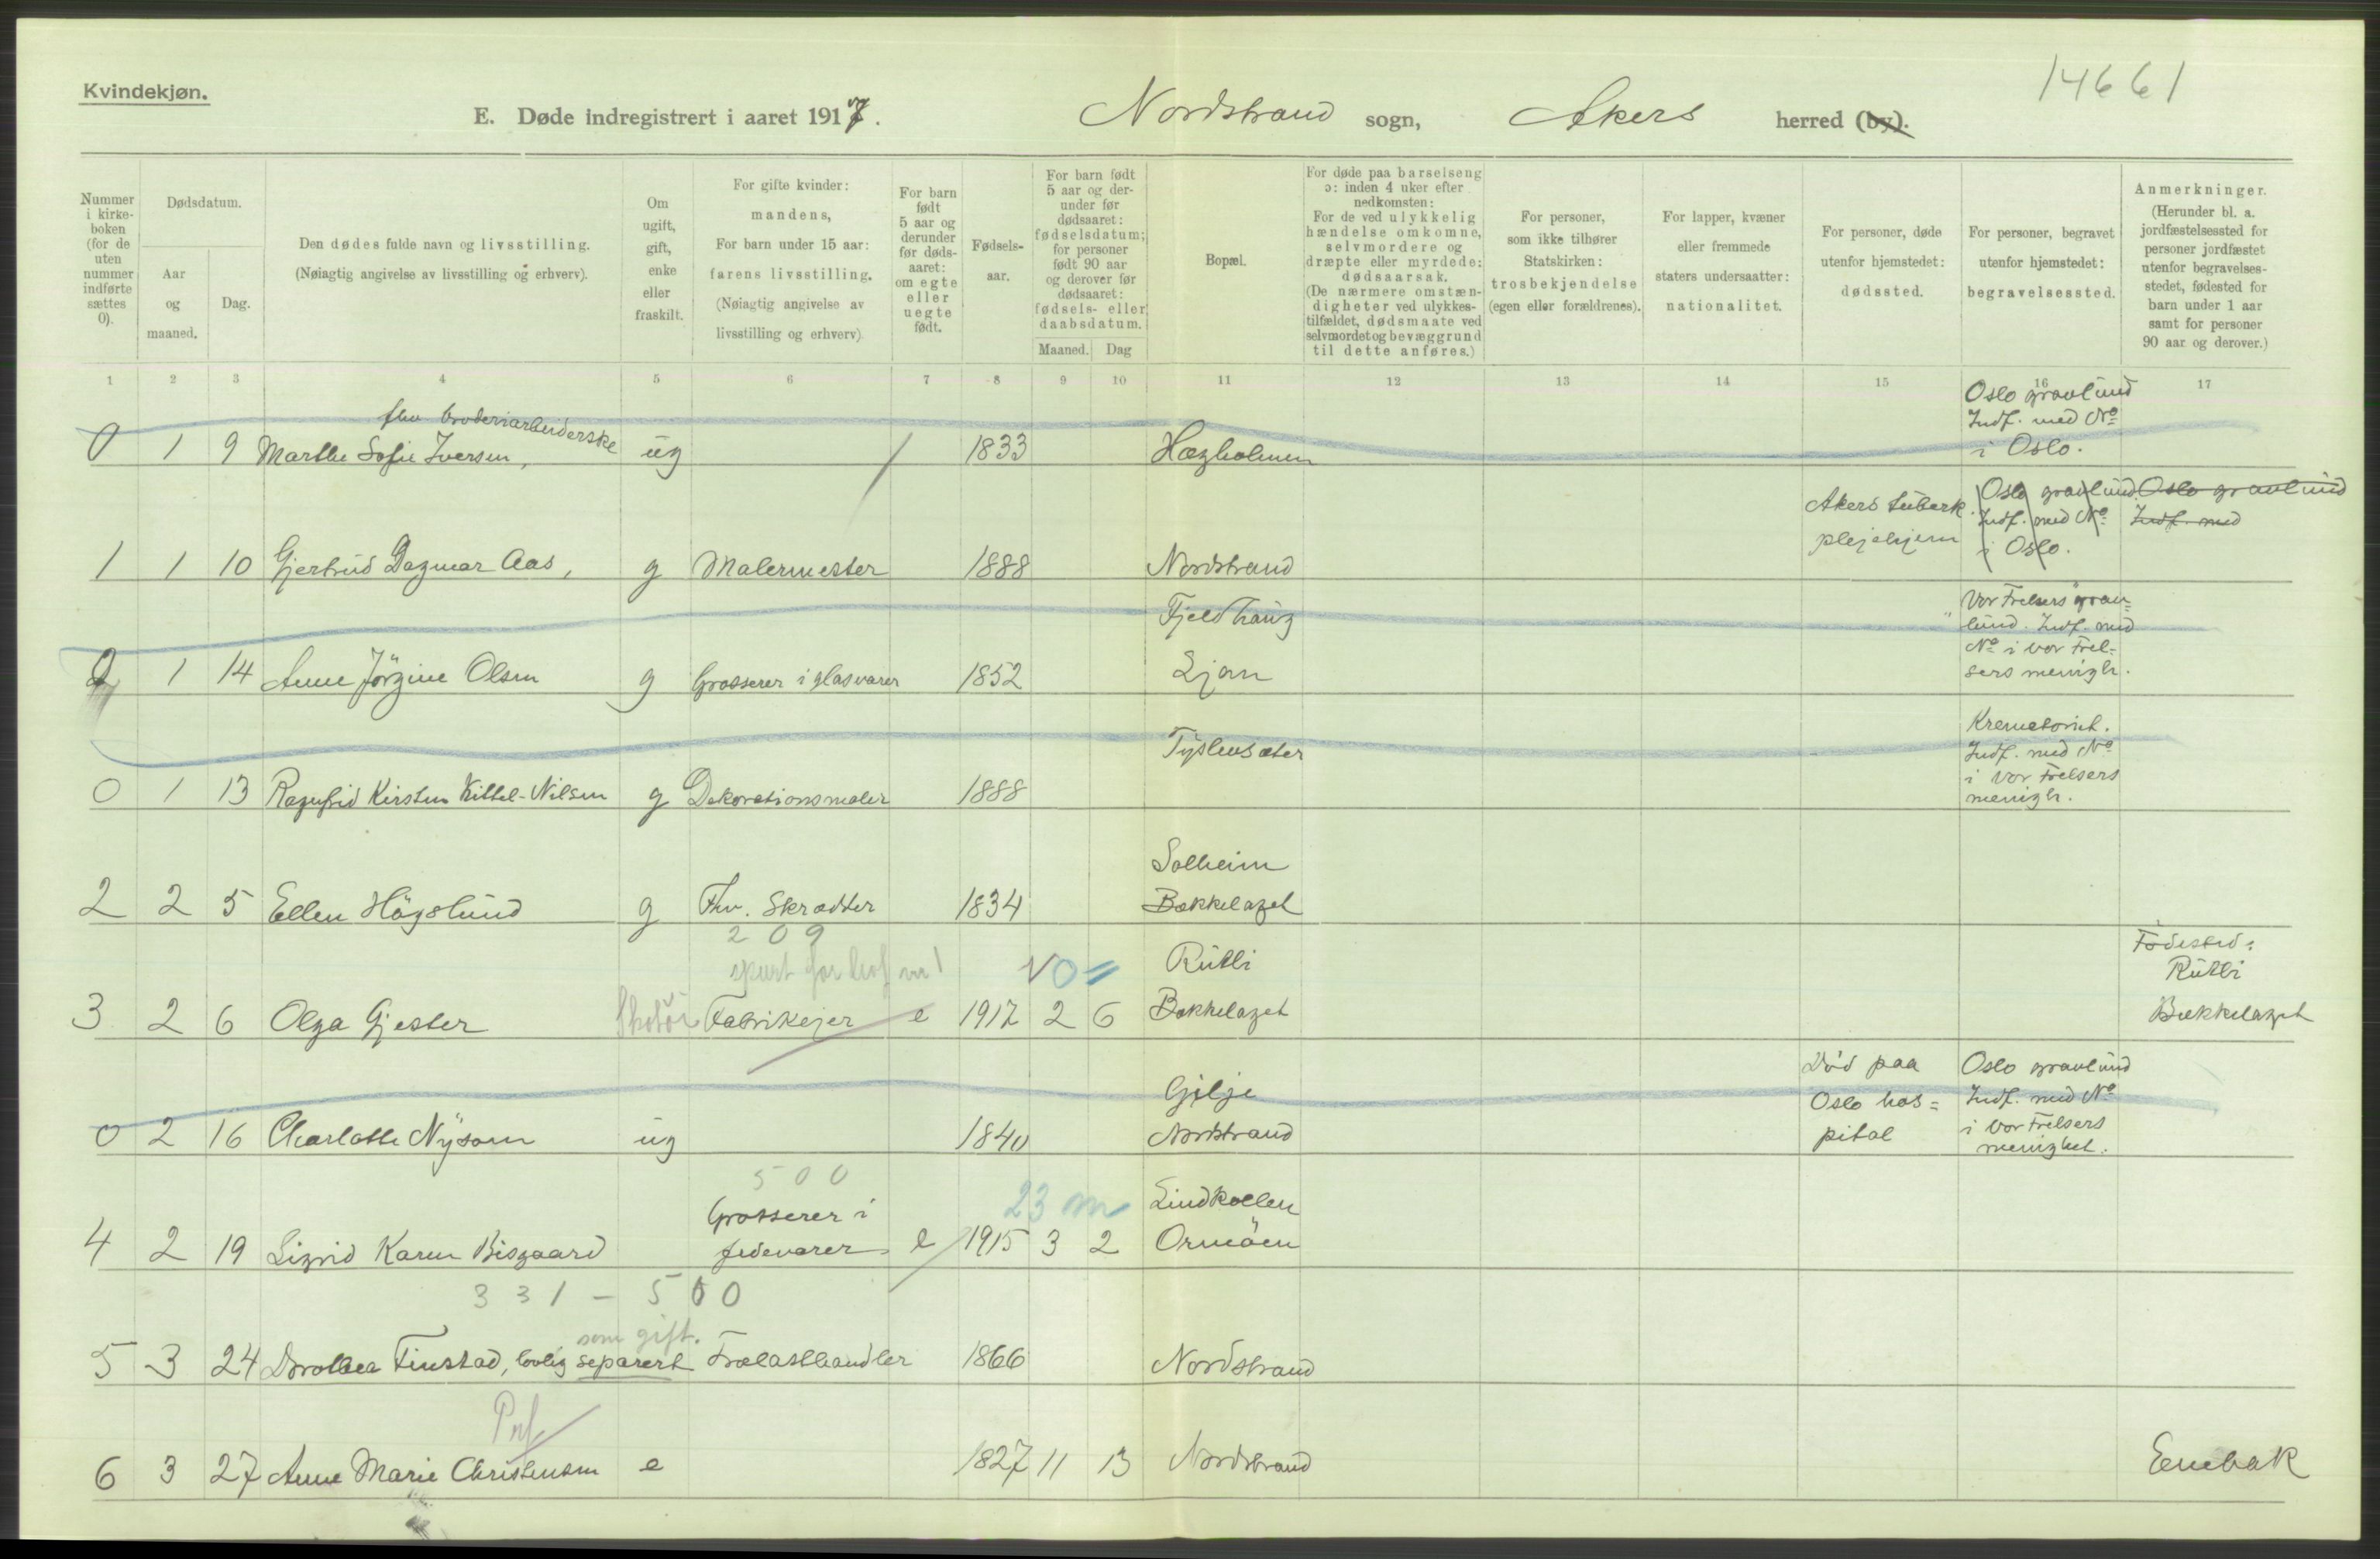 Kvindekjøn.
14661
E. Døde indregistrert i aaret 1917.
Nordstrand sogn, Akers herred (by).
Nummer i kirke-boken (for de uten nummer indførte sættes 0).
Dødsdatum.
Aar og maaned.
Dag.
Den dødes fulde navn og livsstilling.
(Nøiagtig angivelse av livsstilling og erhverv).
Om ugift, gift, enke eller fraskilt.
For gifte kvinder: mandens,
For barn under 15 aar: farens livsstilling.
(Nøiagtig angivelse av livsstilling og erhverv)
For barn født 5 aar og derunder før døds-aaret: om egte eller uegte født.
Fødsels-aar.
For barn født 5 aar og der-under før dødsaaret: fødselsdatum; for personer født 90 aar og derover før dødsaaret: fødsels- eller daabsdatum.
Maaned.
Dag
Bopæl.
For døde paa barselseng ɔ: inden 4 uker efter nedkomsten:
For de ved ulykkelig hændelse omkomne, selvmordere og dræpte eller myrdede: dødsaarsak.
(De nærmere omstæn-digheter ved ulykkes-tilfældet, dødsmaate ved selvmordet og bevæggrund til dette anføres.)
For personer, som ikke tilhører Statskirken: trosbekjendelse (egen eller forældrenes).
For lapper, kvæner eller fremmede staters undersaatter: nationalitet.
For personer, døde utenfor hjemstedet: dødssted.
For personer, begravet utenfor hjemstedet: begravelsessted.
Anmerkninger.
(Herunder bl. a. jordfæstelsessted for personer jordfæstet utenfor begravelses-stedet, fødested for barn under 1 aar samt for personer 90 aar og derover.)
1 2 3 4 5 6 7 8 9 10 11 12 13 14 15 16 17
fhv broderiarbeiderske
0 1 9 Marthe Sofie Iversen, ug 1833 Hægholmen Oslo gravlund Indf. med No i Oslo.
1 1 10 Gjertrud Dagmar Aas, g Malermester 1888 Nordstrand Akers tuberk. plejehjem Oslo gravlund Indf. med No i Oslo. Oslo gravlund Indf. med
0 1 14 Anne Jörgine Olsen g Grosserer i glasvarer 1852 Fjeldhaug Ljan Vor Frelsers grav= lund. Indf. med No i vor Frel= sers menigh.
0 1 13 Ragnfrid Kirsten Kittel-Nilsen g Dekorationsmaler 1888 Krematoriet. Indf. med No i Vor Frelsers menigh.
2 2 5 Ellen Högslund g Fhv. Skrædder 1834 Solheim Bækkelaget
209
3 2 6 Olga Gjester Fabrikejer e 1917 2 6 Rütli Bækkelaget Födested: Rütli Bækkelaget
0 2 16 Charlotte Nysom ug 1840 Gjilje Nordstrand Död paa Oslo hos= pital Oslo gravlund Indf. med No i Vor Frelsers menighet.
500
23 m
4 2 19 Sigrid Karen Bisgaard Grosserer i fedevarer e 1915 3 2 Lindkollen Ormöen
331 - 500
som gift.
5 3 24 Dorothea Finstad, lovlig separert Trælasthandler 1866 Nordstrand
6 3 27 Anne Marie Christensen e 1827 11 13 Nordstrand Enebak